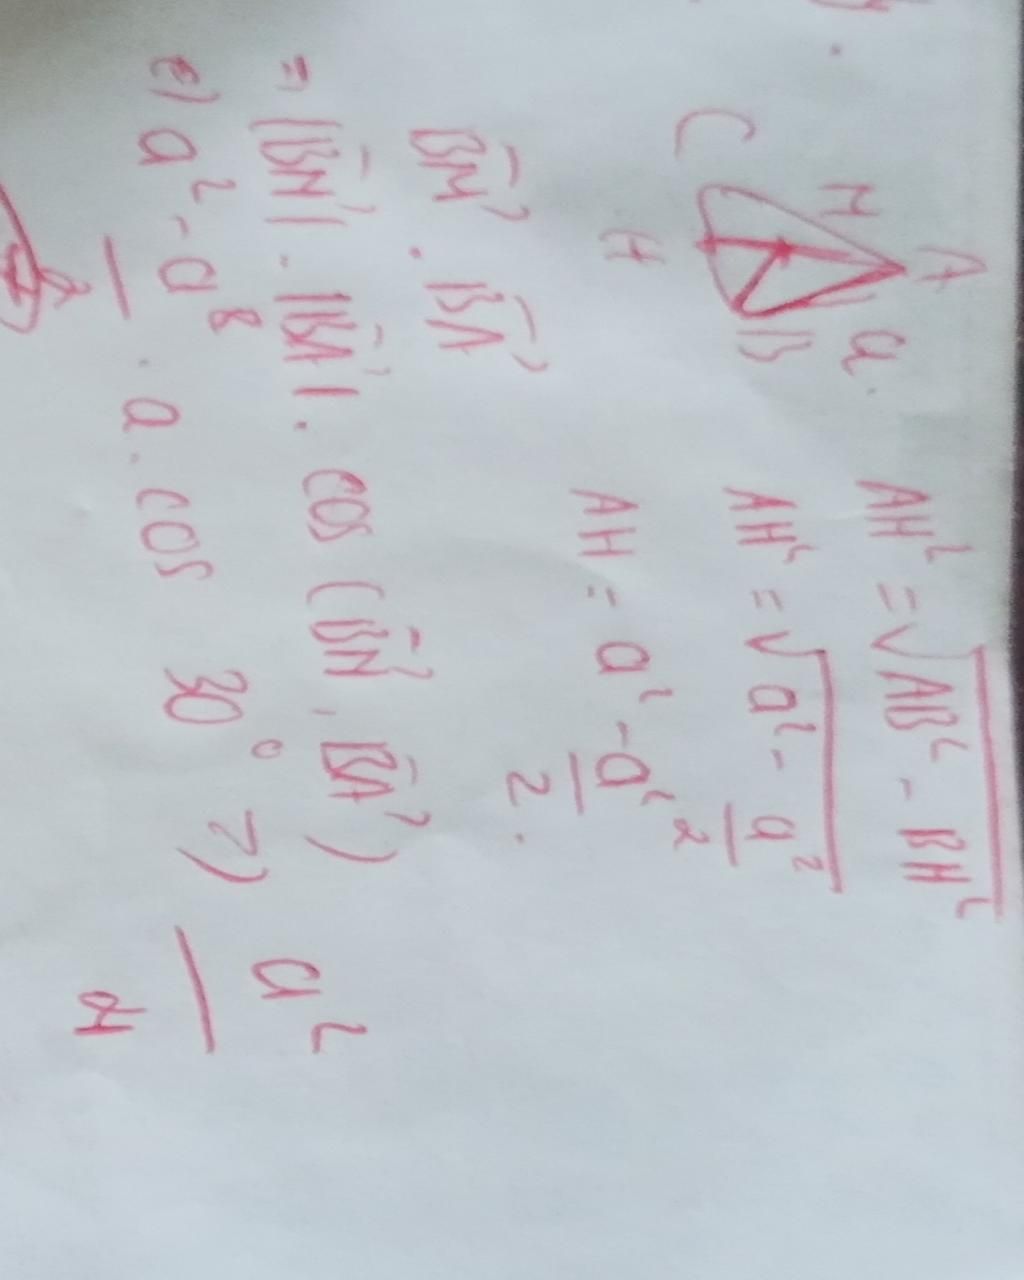 A
M
a.
B
C
H
AH² = √AB² - BH²
AH² = √a² - a²/2
AH = a² - a²/2.
BM . BA
= |BM| . |BA| . cos (BM, BA)
a² - a
. a . cos 30°
a²